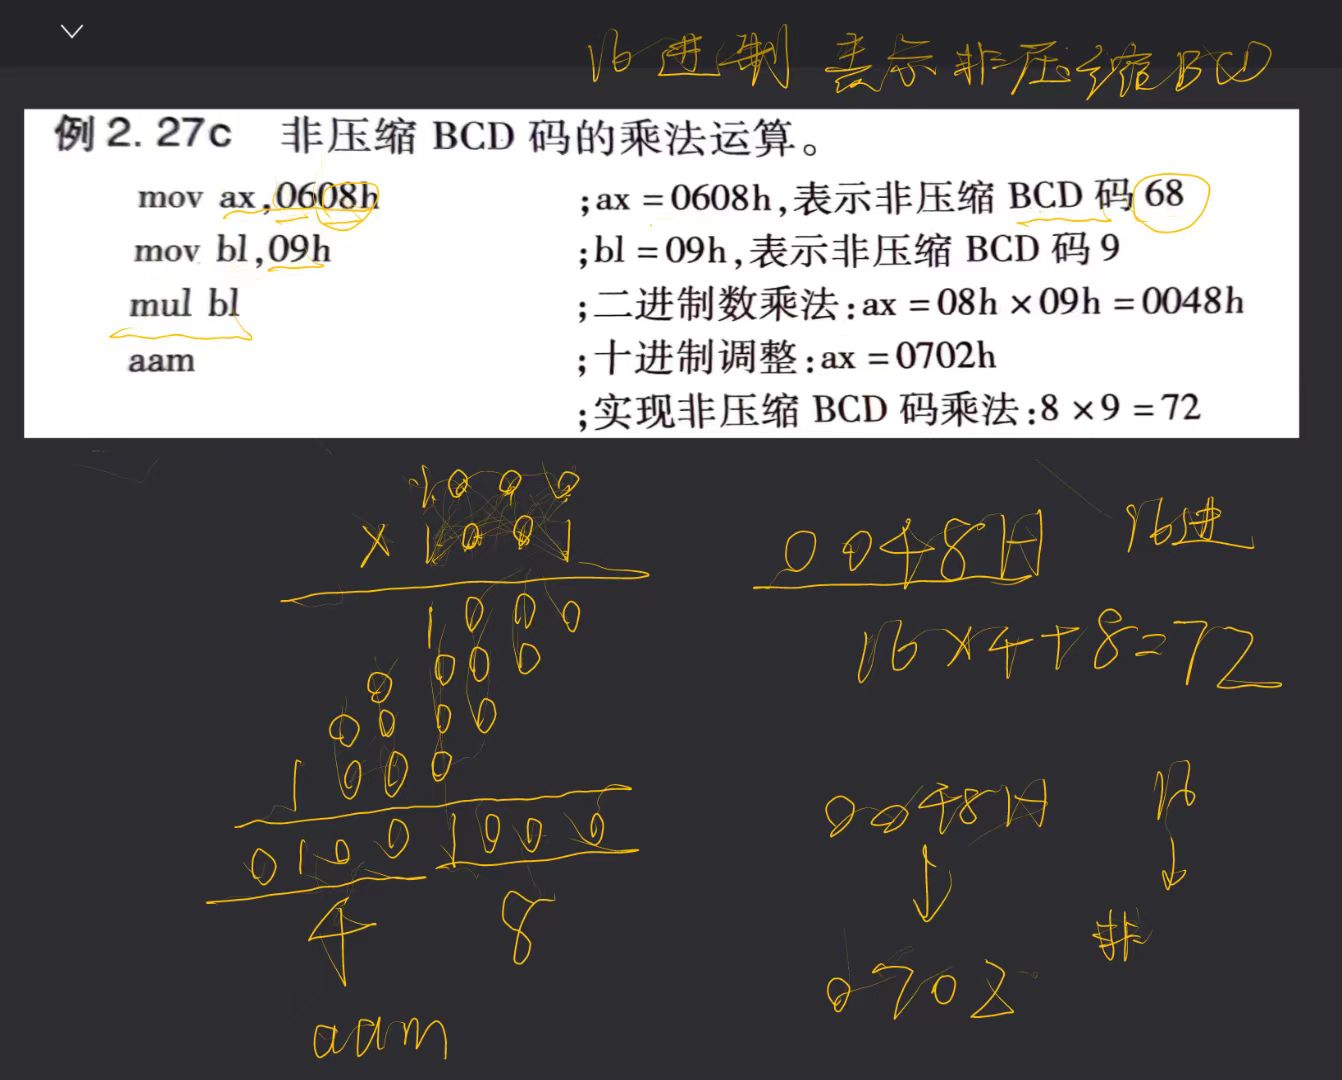 16进制 表示非压缩BCD
例 2. 27c 非压缩 BCD 码的乘法运算。
mov ax,0608h ;ax = 0608h,表示非压缩 BCD 码 68
mov bl,09h ;bl = 09h,表示非压缩 BCD 码 9
mul bl ;二进制数乘法:ax = 08h × 09h = 0048h
aam ;十进制调整:ax = 0702h
;实现非压缩 BCD 码乘法:8 × 9 = 72
1 0 0 0
× 1 0 0 1
1 0 0 0
0 0 0
0
0 0 0 0
1 0 0 0
0 1 0 0 1 0 0 0
4 8
aam
0048H 16进
16×4+8=72
0048H 16
↓ ↓
0702 非